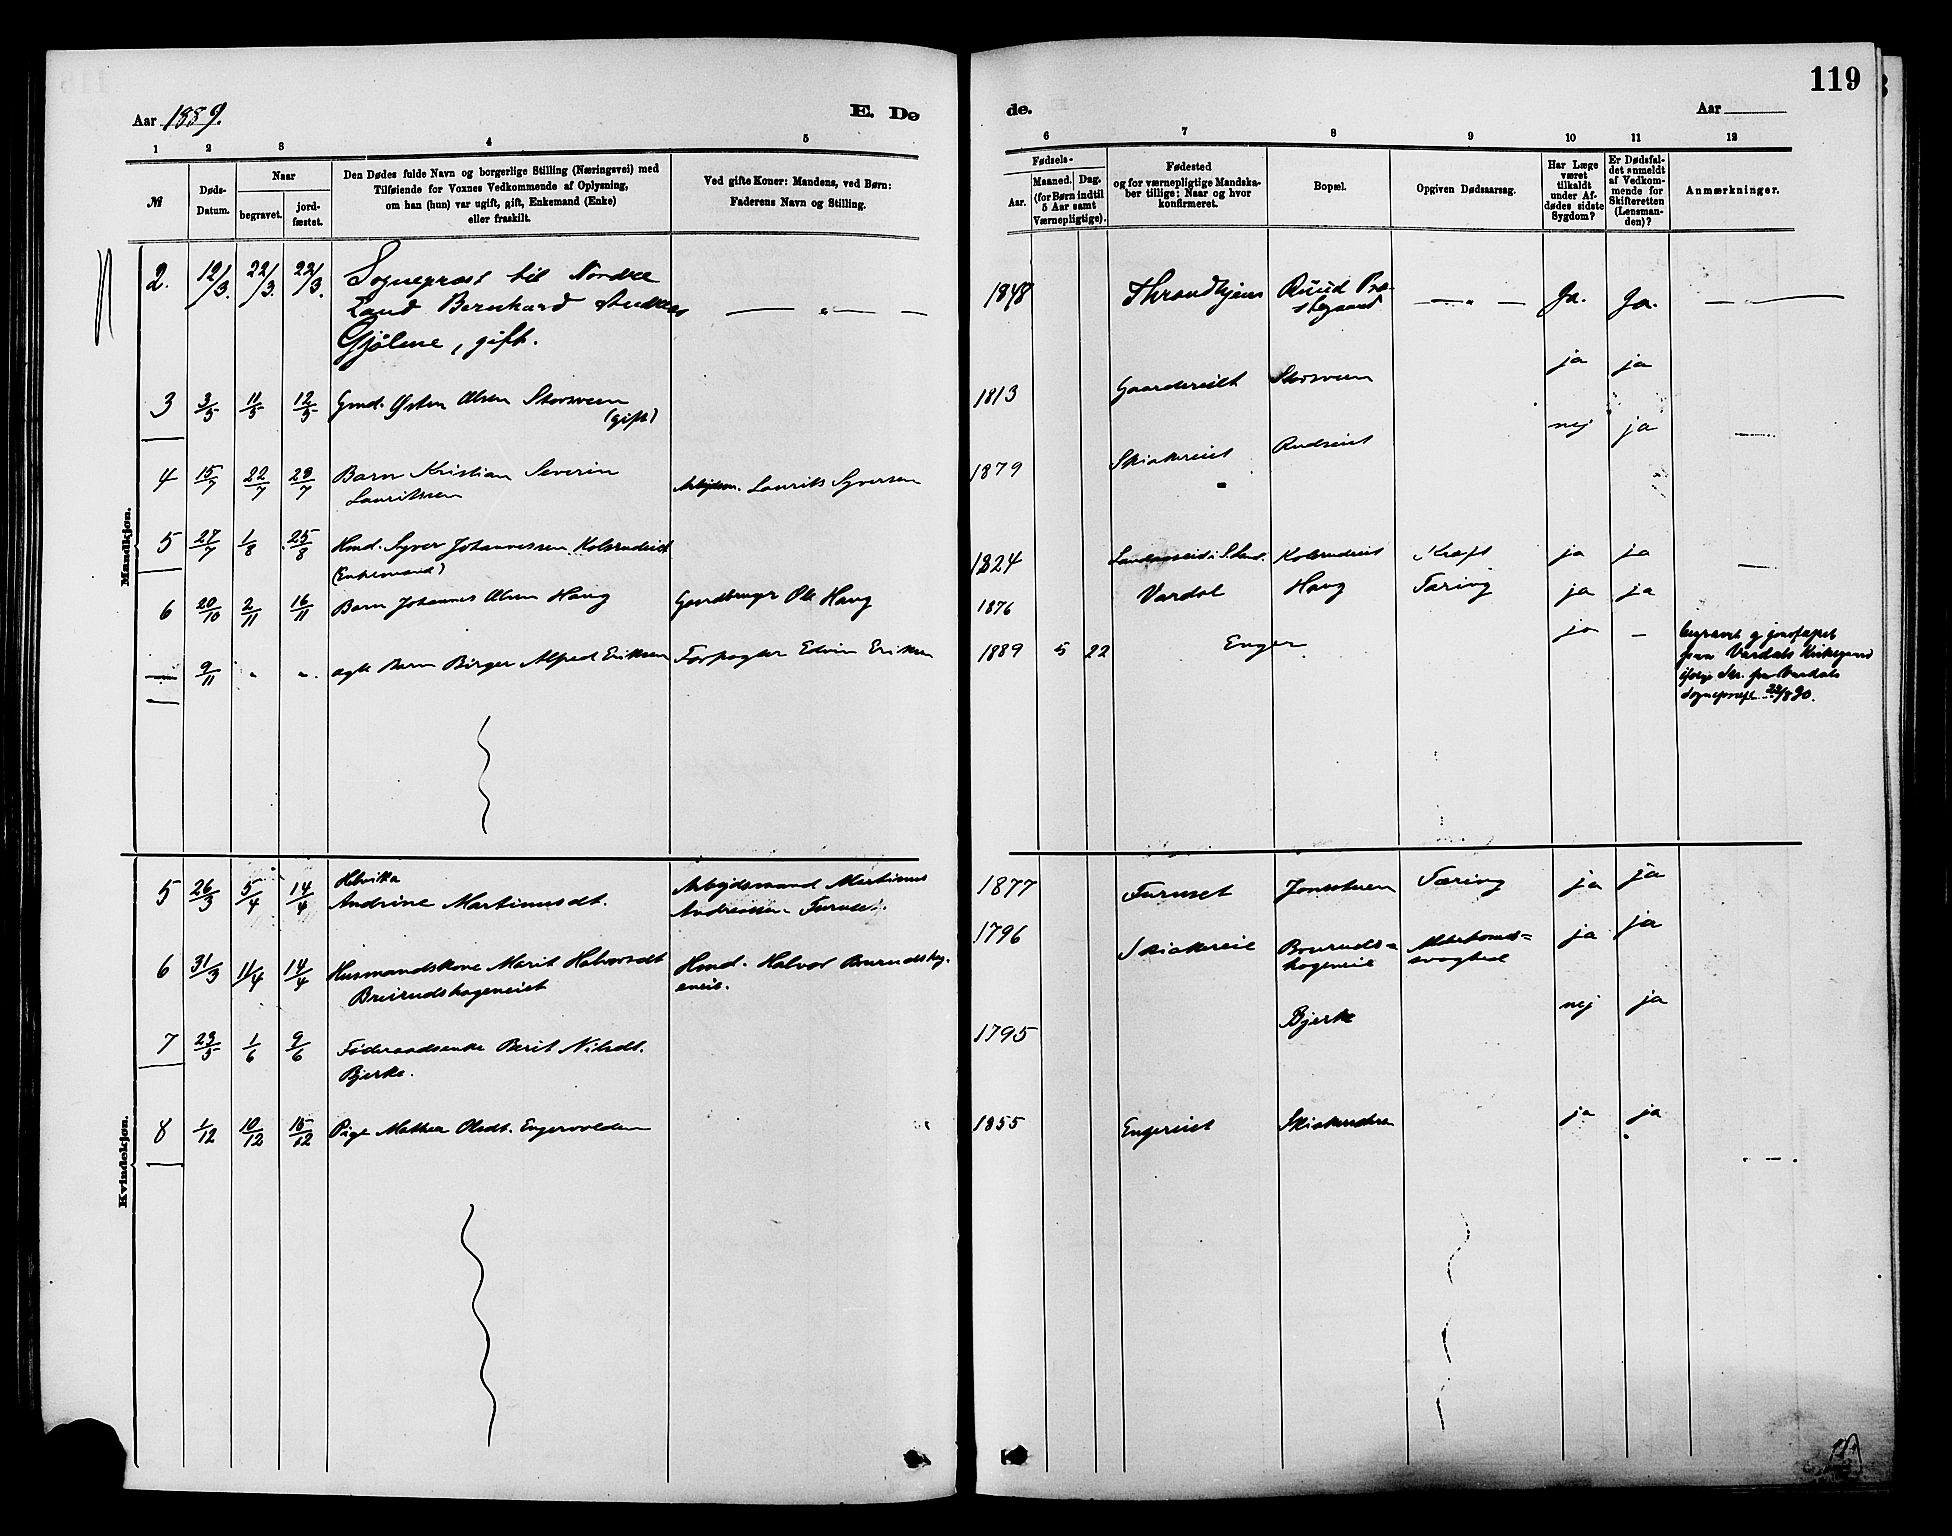 119
Aar 1889.
E. Dø
de.
Aar
1 2 3 4 5
6 7 8 9 10 11 12
№
Døds-
Datum.
Naar
begravet.
jord-
fæstet.
Den Dødes fulde Navn og borgerlige Stilling (Næringsvei) med
Tilføiende for Voxnes Vedkommende af Oplysning,
om han (hun) var ugift, gift, Enkemand (Enke)
eller fraskilt.
Ved gifte Koner: Mandens, ved Børn:
Faderens Navn og Stilling.
Fødsels-
Aar.
Maaned. Dag.
(for Børn indtil
5 Aar samt
Værnepligtige).
Fødested
og for værnepligtige Mandska-
ber tillige: Naar og hvor
konfirmeret.
Bopæl.
Opgiven Dødsaarsag.
Har Læge
været
tilkaldt
under Af-
dødes sidste
Sygdom?
Er Dødsfal-
det anmeldt
af Vedkom-
mende for
Skifteretten
(Lensman-
den)?
Anmærkninger.
Mandkjøn.
2. 12/3. 22/3. 22/3. Sogneprest til Nordre
Land Bernhard Andreas
Gjølme, gift.
1848 Throndhjem Ruud Præ-
stegaard Ja. Ja.
3 3/5 11/5 12/5 Gmd. Østen Olsen Storsveen
(gift)
1813 Gaardereiet Storsveen ja ja
4 15/7 22/7 28/7 Barn Kristian Severin
Lauritssen
Arbeidsm. Laurits Syversen
1879 Skiakereiet Rudseiet nej ja
5 27/7 1/8 25/8 Hmd. Syver Johannessen Kolsrudeiet
(Enkemand)
1824 S. Land. Kolsrudeiet Kræft ja ja
6 20/10 2/11 16/11 Barn Johannes Olsen Haug Gaardbruger Ole Haug
1876 Vardal Haug Tæring ja ja
— 9/11 " " ægte Barn Birger Alfred Eriksen Forpagter Edvin Eriksen
1889 5 22 Enger ja —
begravet og jordfæstet
paa Vardals Kirkegaard
ifølge Skr. fra Vardals
Sogneprest 22/8 90.
Kvindekjøn.
5 26/3 5/4 14/4 Helvika
Andrine Martinusdt.
Arbejdsmand Martinus
Andreassen Furuset.
1877 Furuset Jonsstuen Tæring ja ja
6 31/3 11/4 14/4 Husmandskone Marit Halvorsdt
Breirudshageneiet
Hmd. Halvor Breirudshag-
eneie.
1796 Skiakereie Breiruds-
hageneie Alderdoms-
svaghed ja ja
7 23/5 1/6 9/6 Føderaadsenke Berit Nilsdt.
Bjerke.
1795 Bjerke nej ja
8 1/12 10/12 15/12 Pige Mathea Olsdt. Engervolden
1855 Engereiet ja ja